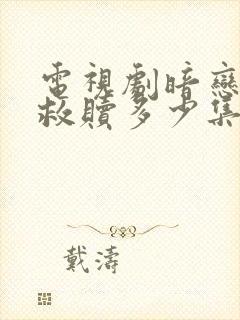 電視劇暗戀
救贖多少集
戴濤